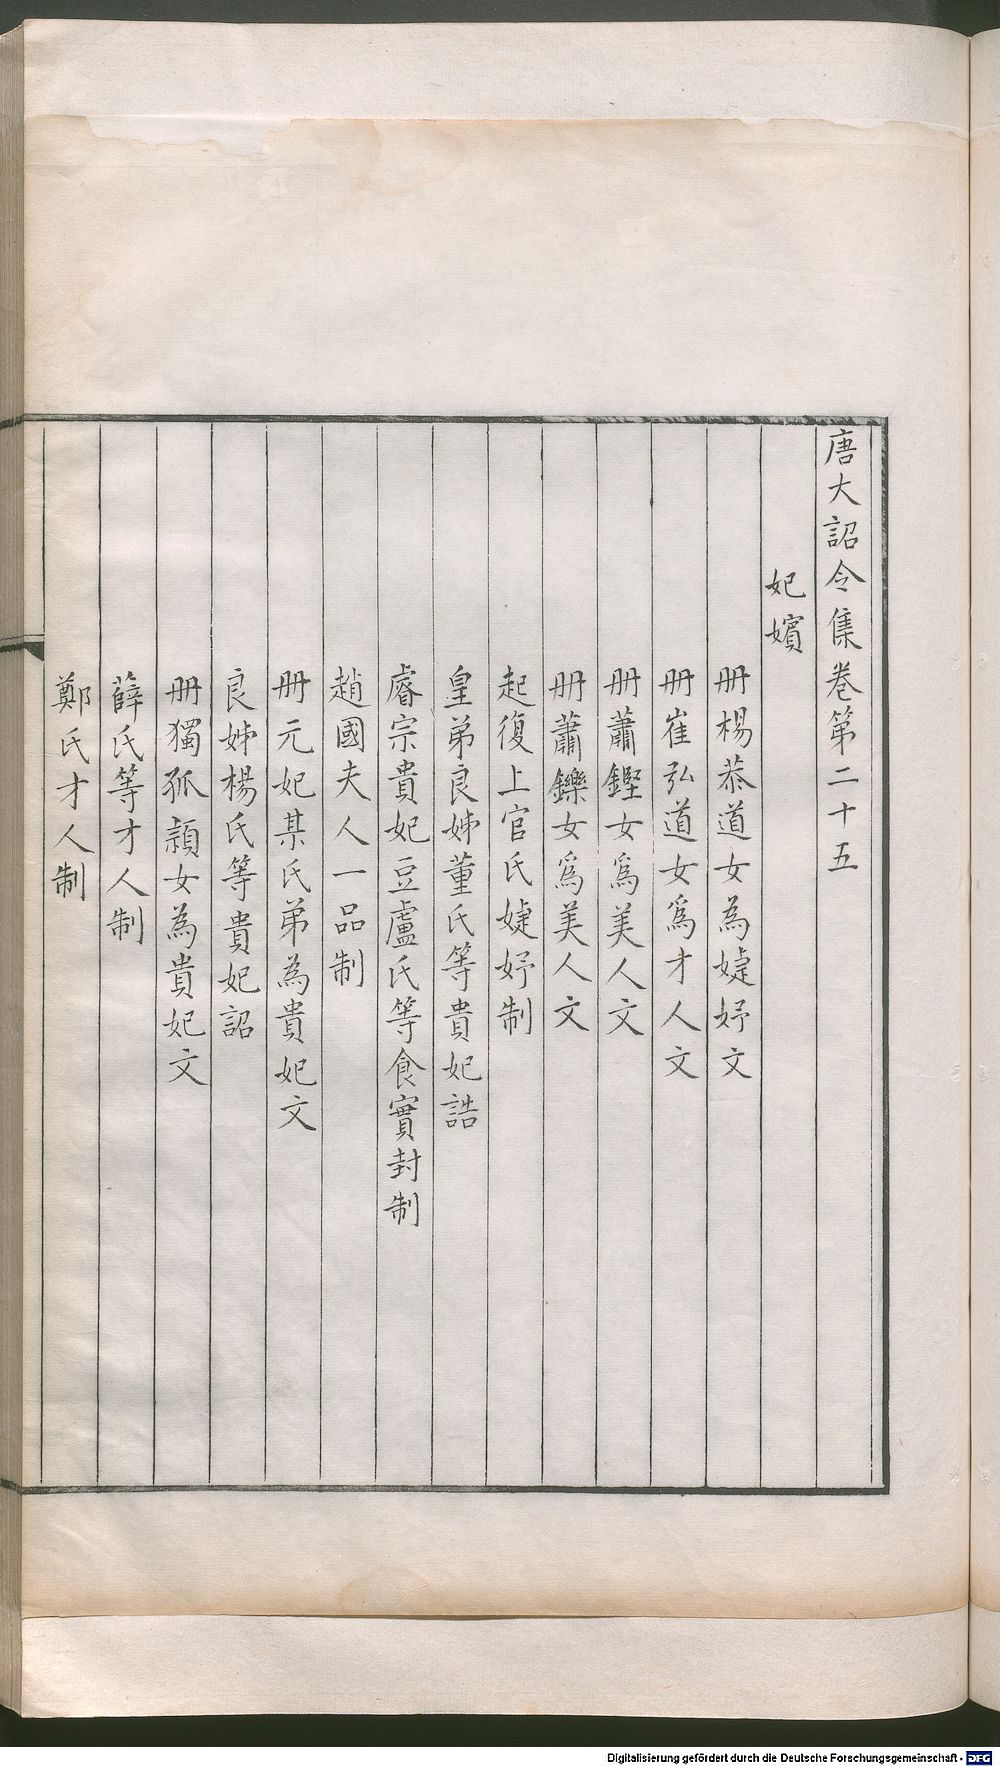 唐大詔令集卷第二十五
妃嬪
册楊恭道女為婕妤文
册崔弘道女爲才人文
册蕭鏗女爲美人文
册蕭鑠女爲美人文
起復上官氏婕妤制
皇弟良娣董氏等貴妃誥
睿宗貴妃豆盧氏等食實封制
趙國夫人一品制
册元妃某氏弟為貴妃文
良娣楊氏等貴妃詔
册獨孤潁女為貴妃文
薛氏等才人制
鄭氏才人制
Digitalisierung gefördert durch die Deutsche Forschungsgemeinschaft - DFG